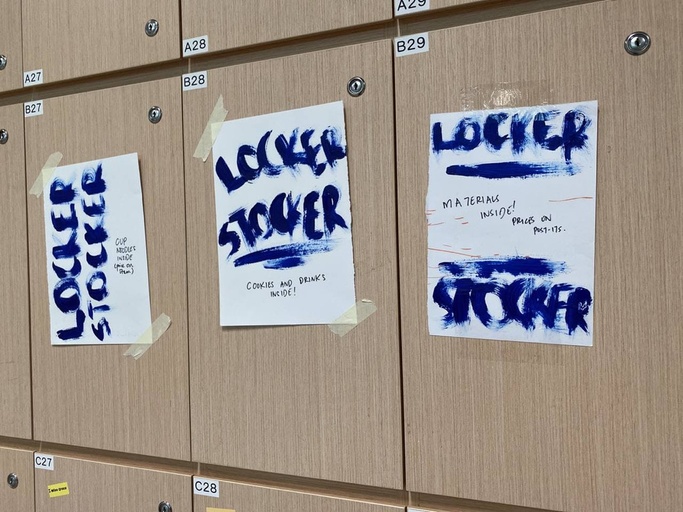 A27
A28
A29
B27
B28
B29
LOCKER
STOCKER
CUP
NOODLES
INSIDE
LOCKER
STOCKER
COOKIES AND DRINKS
INSIDE!
LOCKER
MATERIALS
INSIDE!
PRICES ON
POST-ITS.
STOCKER
C27
C28